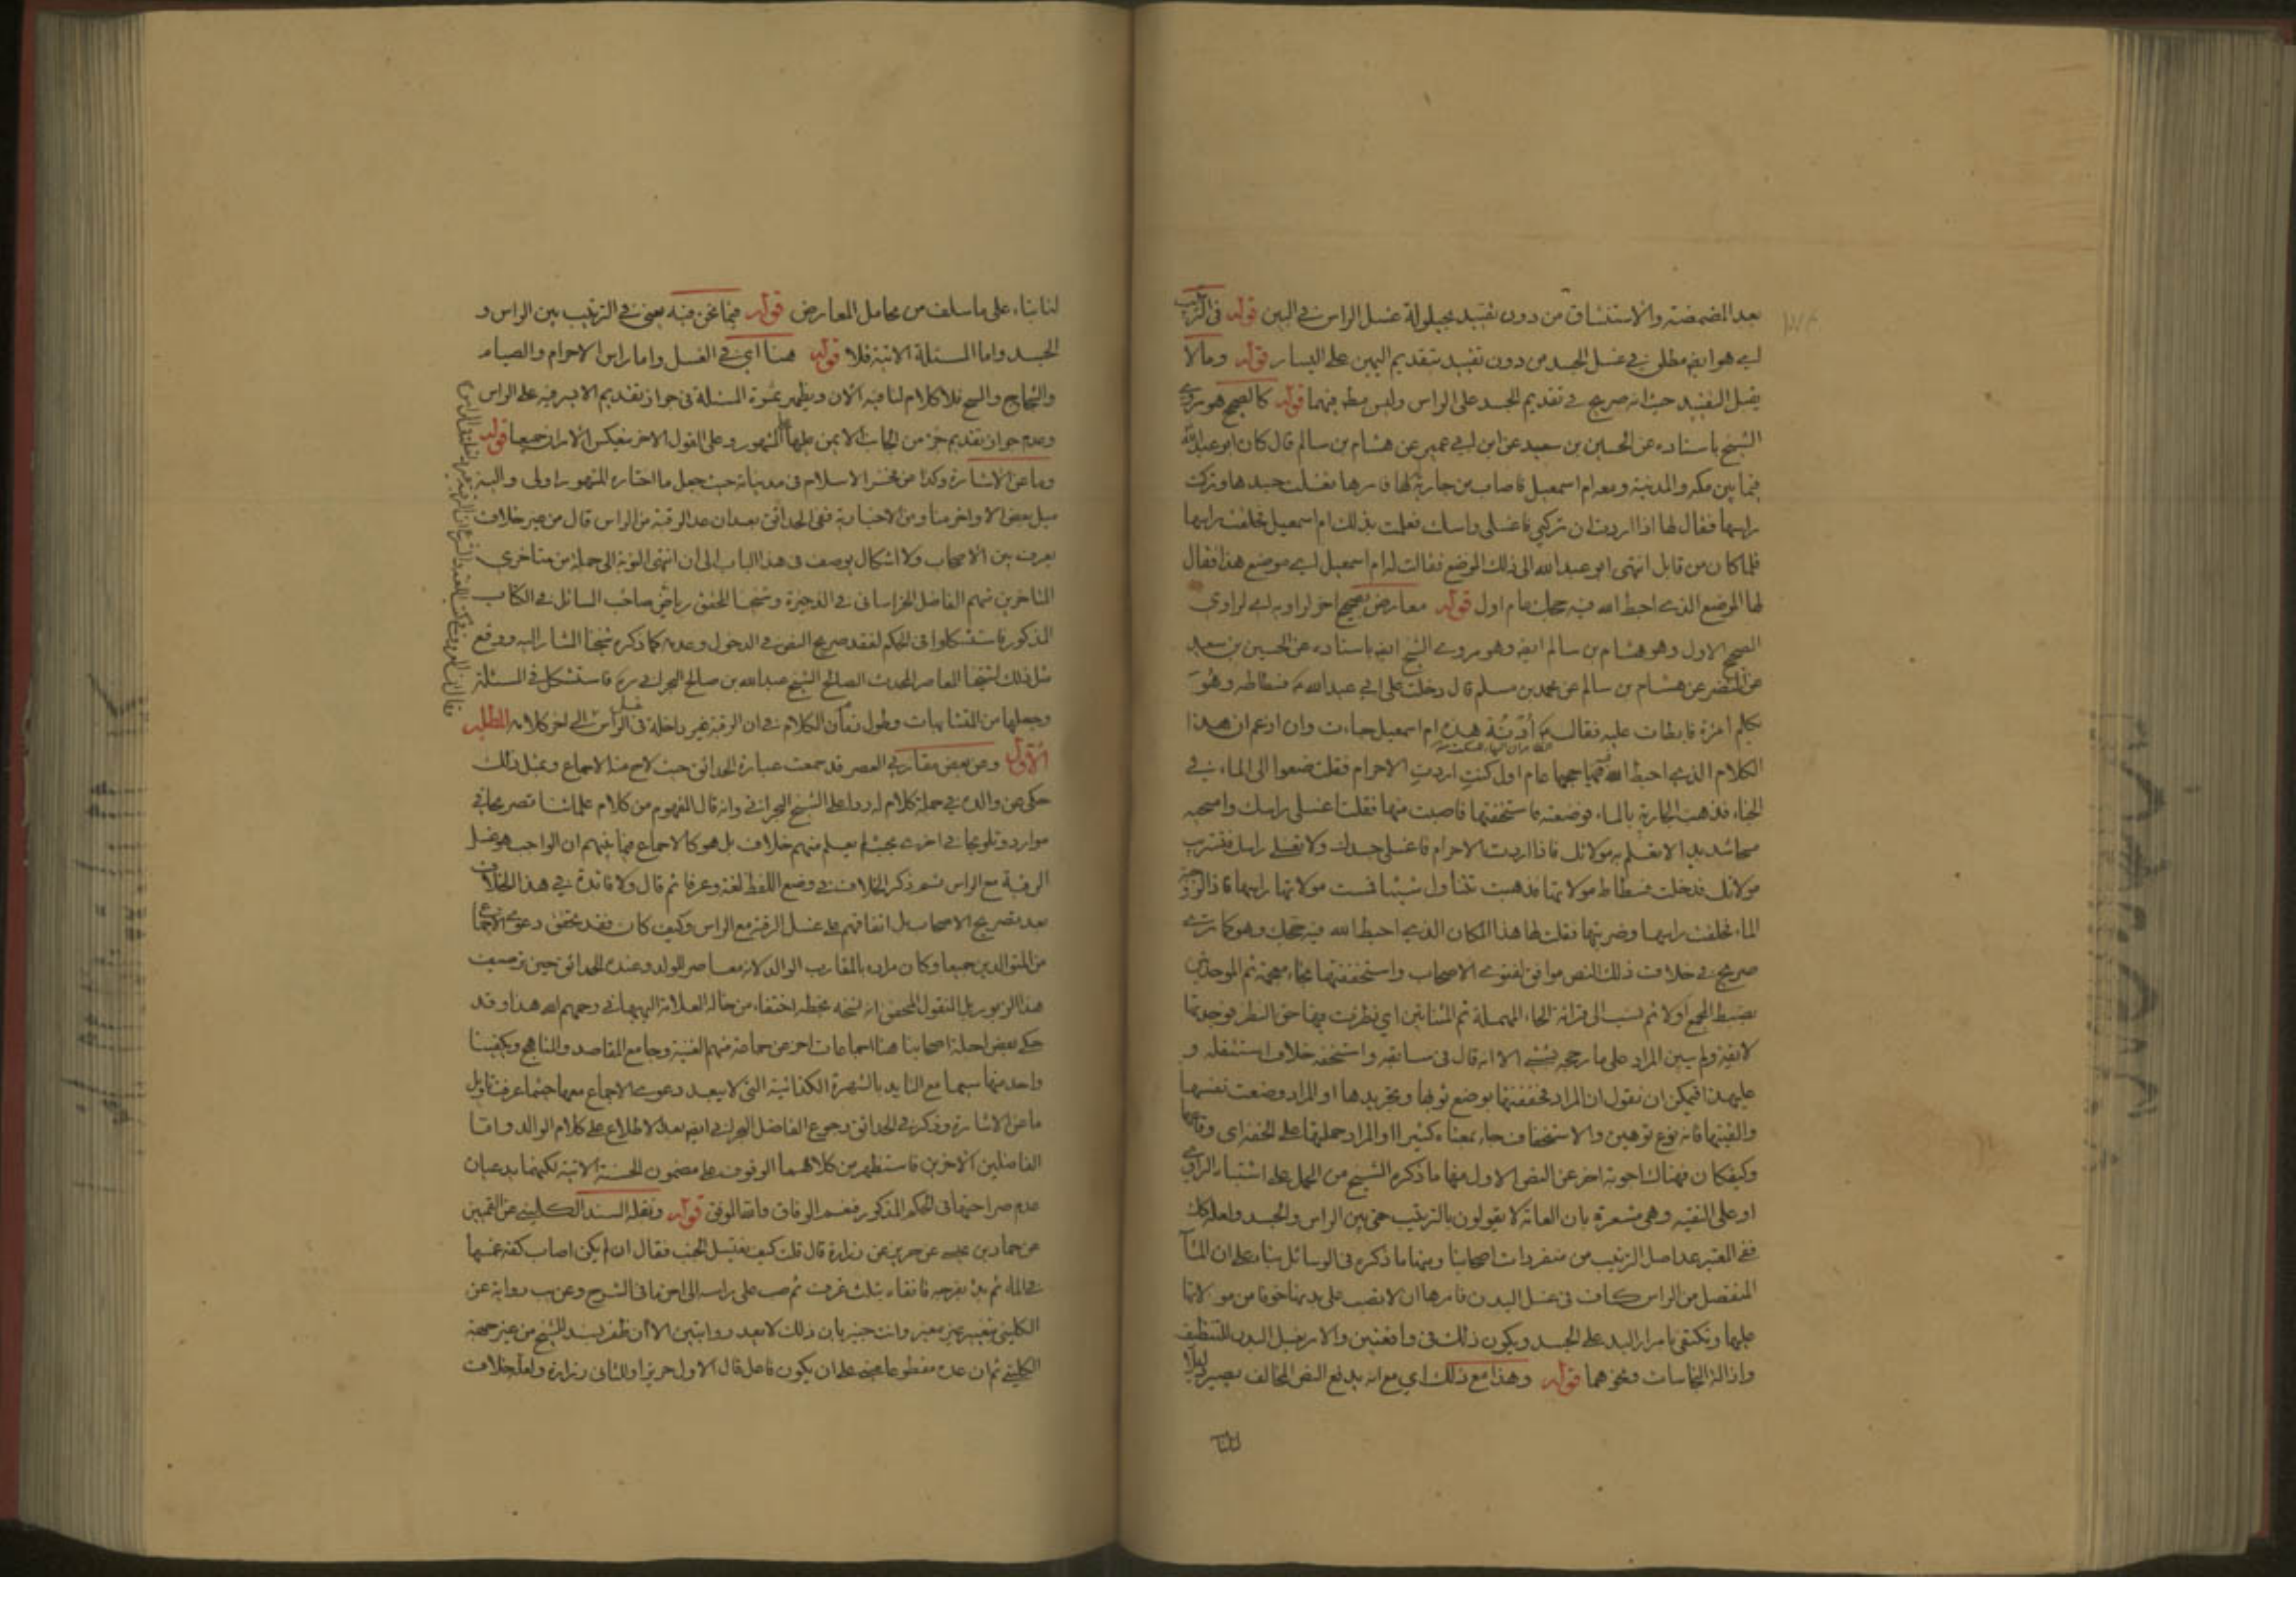 بعد المضمضة والاستنشاق من دون تقييد بحيلولة غسل الراس في البين قوله في الترتيب
اي هو ايضا مطلق في غسل الجسد من دون تقييد بتقديم اليمين على اليسار قوله وما لا
يقبل التقييد حيث انه صريح في تقديم الجسد على الراس وليس مطلقا فيهما قوله كالصحيح هو مروي
الشيخ باسناده عن الحسين بن سعيد عن ابن ابي عمير عن هشام بن سالم قال كان ابو عبد الله
فيما بين مكه والمدينة ومعه ام اسمعيل فاصاب من جارية لها فامرها فغسلت جسدها وتركت
راسها فقال لها اذا اردت ان تركبي فاغسلي راسك ففعلت بذلك ام اسمعيل فحلقت راسها
فلما كان من قابل انتهى ابو عبد الله الى ذلك الموضع فقالت له ام اسمعيل اي موضع هذا فقال
لها الموضع الذي احبط الله فيه حجك عام اول قوله معارض بصحيح اخر لراويه اي لراوي
الصحيح الاول وهو هشام بن سالم ايضا وهو مروي الشيخ ايضا باسناده عن الحسين بن سعيد
عن النضر عن هشام بن سالم عن محمد بن مسلم قال دخلت على ابي عبد الله فسطاطه وهو
يكلم امرأة فابطات عليه فقال ادنه هذه ام اسمعيل جاءت وان ازعم ان هذا
الكلام الذي احبط الله فيه حجها عام اول كنت اردت الاحرام فقلت ضعوا الى الماء في
الخباء فذهبت الجارية بالماء فوضعته فاستخففتها فاصبت منها فقلت اغسلي راسك وامسحيه
مسحا شديدا لا تعلم به مولاتك فاذا اردت الاحرام فاغسلي جسدك ولا تغسلي راسك فتستريب
مولاتك فدخلت فسطاط مولاتها فذهبت تتناول شيئا فمست مولاتها راسها فاذا لزوجة
الماء فحلقت راسها وضربتها فقلت لها هذا المكان الذي احبط الله فيه حجك وهو كما ترى
صريح في خلاف ذلك النص موافق لفتوى الاصحاب واستخففتها بخاء معجمة ثم الموحدتين
بضبط المجمع اولا ثم نسب الى قرائة الحاء المهملة ثم المثناتين اي نظرت فيها حق النظر فوجدتها
لائقة ولم يبين المراد على ما رجحه بشيء الا انه قال في سابقه واستخفه خلاف استثقله و
عليهذا فيمكن ان نقول ان المراد فخففتها بوضع ثوبها وتجريدها او المراد وضعت نفسها
والقيتها فانه نوع توهين والاستخفاف جاء بمعناه كثيرا او المراد حملتها على الخفة اي
وكيفكان فهناك اجوبة اخر عن النص الاول منها ما ذكره الشيخ من الحمل على اشتباه الراوي
او على التقيه وهي مشعرة بان العامة لا يقولون بالترتيب حتى بين الراس والجسد ولعله كك
ففي المعتبر عد اصل الترتيب من منفردات اصحابنا ومنها ما ذكره في الوسائل بناء على ان الماء
المنفصل من الراس كاف في غسل البدن فامرها ان لا تصب على بدنها خوفا من مولاتها
عليها وتكتفي بامرار اليد على الجسد ويكون ذلك في واقعتين والامر بغسل البدن للتنظيف
وازالة النجاسات ونحوهما قوله وهذا مع ذلك اي مع انه يدفع النص المخالف يصير دليلا
لنا بناء على ما سلف من محامل المعارض قوله فيما نحن فيه يعني في الترتيب بين الراس و
الجسد واما المسئلة الاتية فلا قوله هنا اي في الغسل واما راس الاحرام والصيام
والشجاج والمسح فلا كلام لنا فيه الان ويظهر ثمرة المسئلة في جواز تقديم الايسر فيه على الراس
وعدم جواز تقديم جزء من الجانب الايمن عليها المشهور وعلى القول الاخر ينعكس الامران جميعا قوله
وما عن الاشارة وكذا من
ميل بعض الاواخر منا ومن الاخبارية ففي الحدائق بعد ان عد الرقبة من الراس قال من غير خلاف
يعرف بين الاصحاب ولا اشكال يوصف في هذا الباب الى ان انتهى النوبة الى جملة من متاخري
المتاخرين منهم الفاضل الخراساني في الذخيرة وشيخنا المحقق رياض صاحب المسائل في الكتاب
المذكور فاستشكلوا في الحكم لفقد صريح النص في الدخول وعدمه كما ذكره شيخنا المشار اليه ووقع
مثل ذلك لشيخنا المعاصر المحدث الصالح الشيخ عبد الله بن صالح البحراني فاستشكل في المسئلة
وجعلها من المتشابهات وطول الكلام في ان الرقبة غير داخلة في غسل الراس الى اخر كلامه المطلب
الاول وعن بعض مقاربي العصر قد سمعت عبارة الحدائق حيث لاح منه الاجماع وبمثل ذلك
حكى عن والده في جملة كلام له ردا على الشيخ البحراني وانه قال المفهوم من كلام علمائنا تصريحا في
موارد وتلويحا في اخرى بحيث لم يعلم منهم خلاف بل هو كالاجماع فيما بينهم ان الواجب هو غسل
الرقبة مع الراس ثم ذكر الخلاف في وضع اللفظ لغة وعرفا ثم قال ولا فائدة في هذا الخلاف
بعد تصريح الاصحاب بل اتفاقهم على غسل الرقبة مع الراس وكيف كان فقد تحقق دعوى الاجماع
من المتوالدين جميعا وكان مراده بالمقارب الوالد لانه معاصر للولد وعنده الحدائق حين ترصيف
هذا المزبور بل المنقول المحقق انه نسخه بخطه اختفاء من خاله العلامة البهبهاني رحمهم الله هذا وقد
حكى بعض اجلة اصحابنا هنا اجماعات اخر عن جماعة منهم الغنية وجامع المقاصد والمناهج ويكفينا
واحد منها سيما مع التايد بالشهرة الكذائية التي لا يبعد دعوى الاجماع معها حيثما عرفت تاويل
ما عن الاشارة وذكر في الحدائق رجوع الفاضل البحراني ايضا بعد الاطلاع على كلام الوالد واما
الفاضلين الاخرين فاستظهر من كلاهما الوقوف على مضمون الحسنة الاتية لكنهما يدعيان
عدم صراحتها في الحكم المذكور فنعم الوفاق والله الموفق قوله ونقله السيد الكليني عن القميين
عن حماد بن عيسى عن حريز عن زرارة قال قلت كيف يغتسل الجنب فقال ان لم يكن اصاب كفه غمسها
في الماء ثم بدء بفرجه فانقاه بثلث غرف ثم صب على راسه الى اخر ما في الشرح
الكليني بتغيير غير مغير وانت خبير بان ذلك لا يعد روايتين الا ان ظفر بسند للشيخ من غير جهة
الكليني ثم ان عده مقطوعا مبني على ان يكون فاعل قال الاول حريزا والثاني زرارة ولعله خلاف